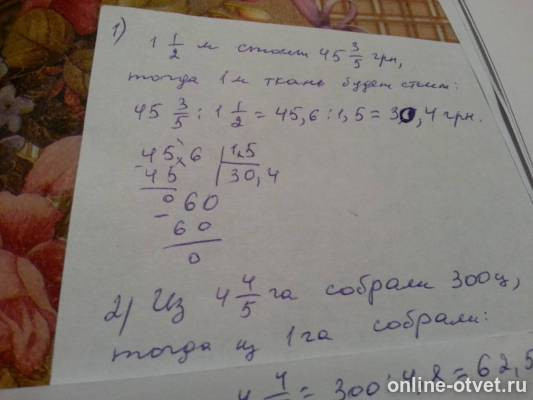 1)
1 1/2 м стоит 45 3/5 грн,
тогда 1 м ткань будет стоит:
45 3/5 : 1 1/2 = 45,6 : 1,5 = 30,4 грн.
45,6 | 1,5
- 45 | 30,4
0 60
- 60
0
2) Из 4 4/5 га собрали 300 ц,
тогда из 1 га собрали:
4/5 = 300 : 4,8 = 62,5
online-otvet.ru